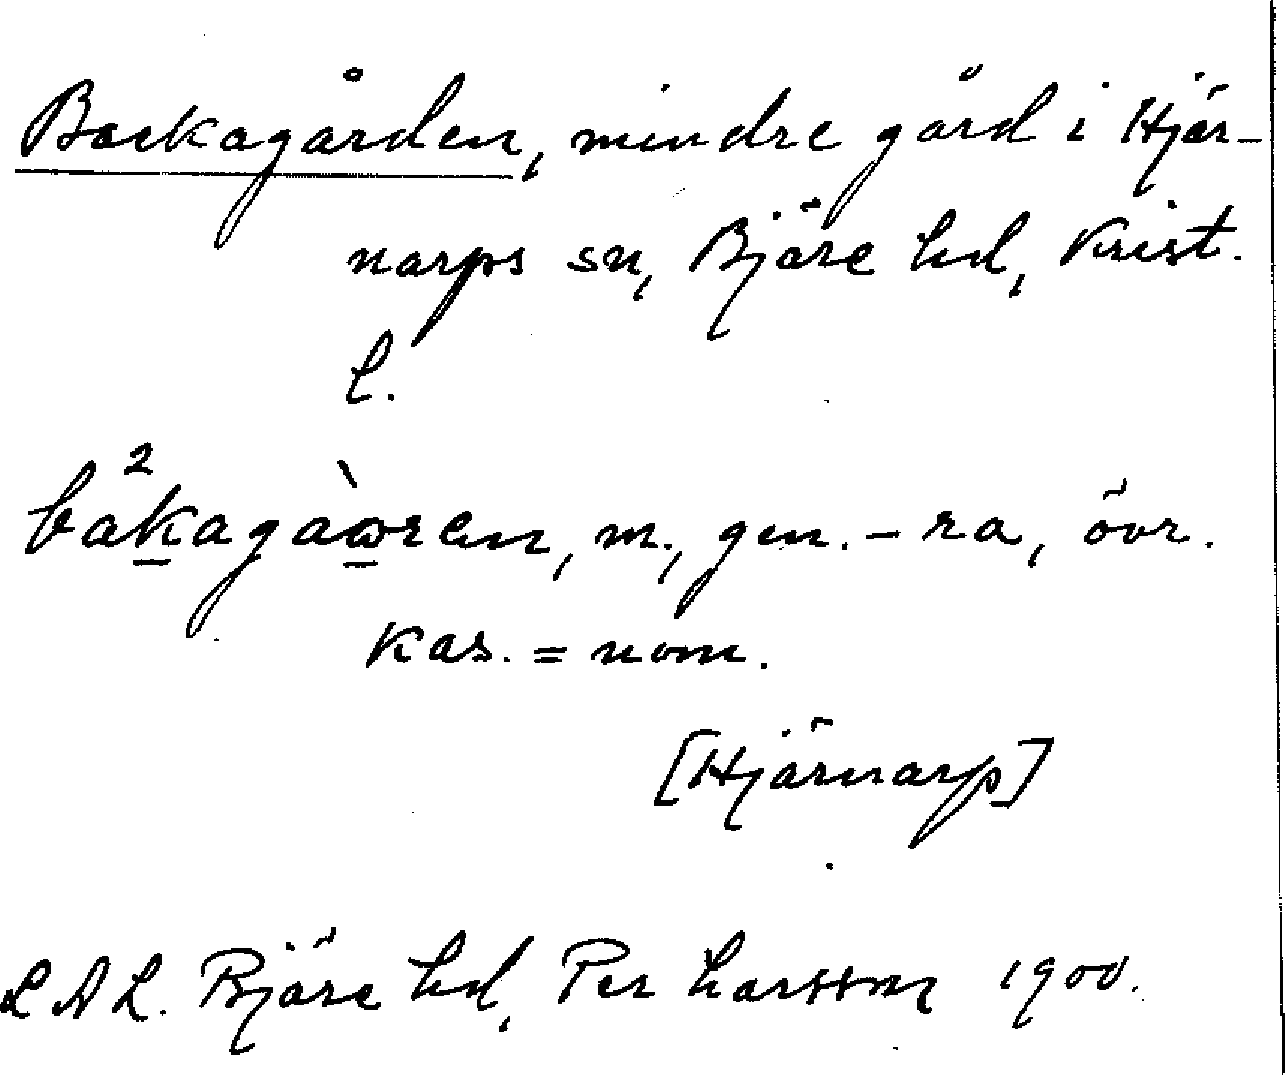 Backagården, mindre gård i Hjär-
narps sn, Bjäre hd, Krist.
L.
bá²kagàωren, m., gen. -ra, övr.
kas. = nom.
[Hjärnarp]
LAL. Bjäre hd, Per Larsson 1900.